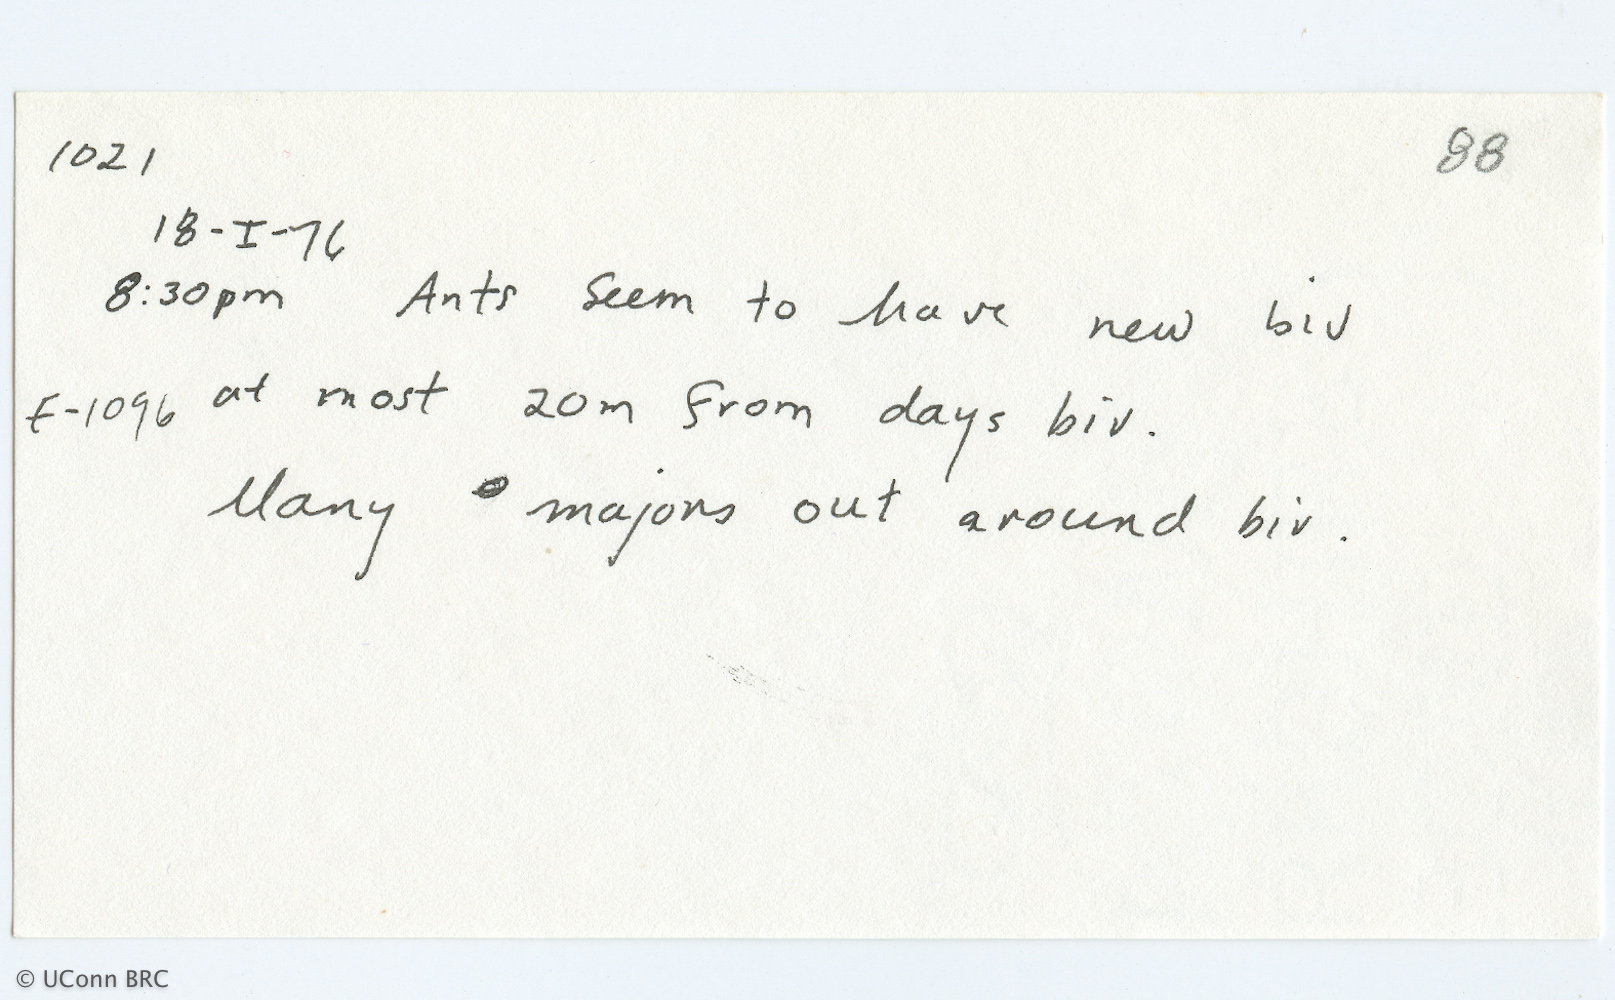 1021
88
18-I-76
8:30pm Ants seem to have new biv
E-1096 at most 20m from days biv.
Many majors out around biv.
© UConn BRC